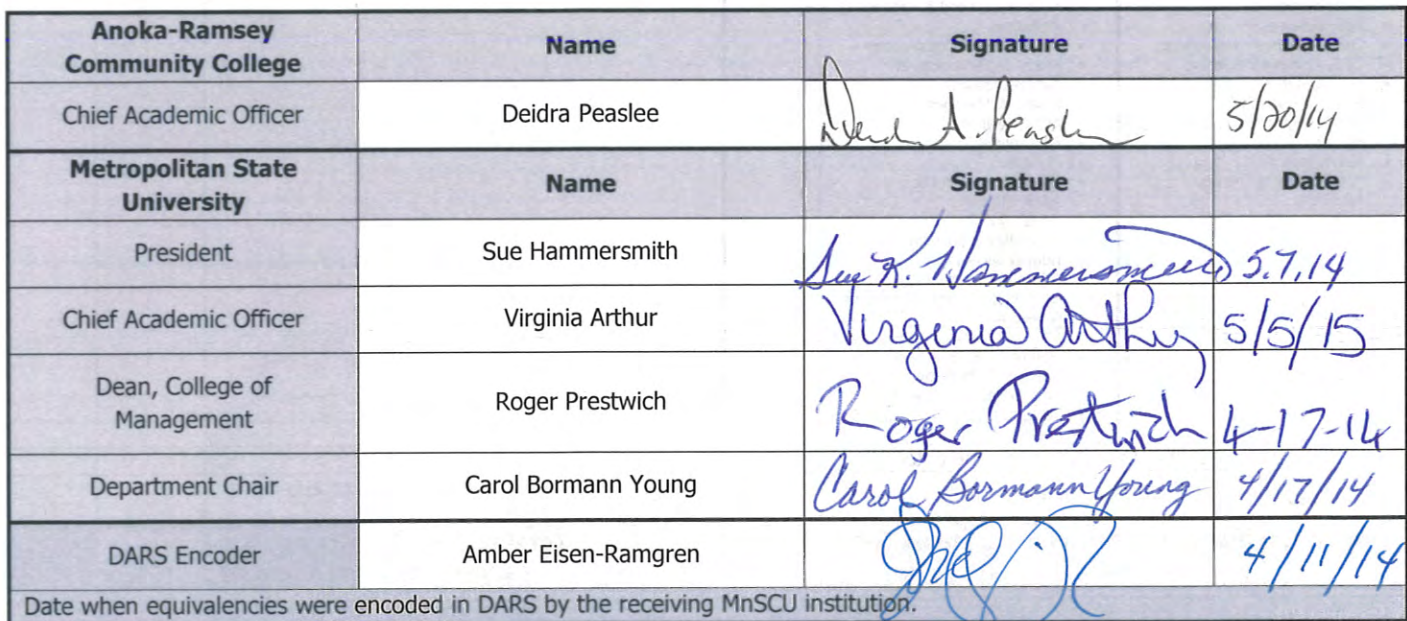 Anoka-Ramsey Community College Name Signature Date
Chief Academic Officer Deidra Peaslee Deidra A. Peaslee 5/20/14
Metropolitan State University Name Signature Date
President Sue Hammersmith Sue K. Hammersmith 5.7.14
Chief Academic Officer Virginia Arthur Virginia Arthur 5/5/15
Dean, College of Management Roger Prestwich Roger Prestwich 4-17-14
Department Chair Carol Bormann Young Carol Bormann Young 4/17/14
DARS Encoder Amber Eisen-Ramgren 4/11/14
Date when equivalencies were encoded in DARS by the receiving MnSCU institution.